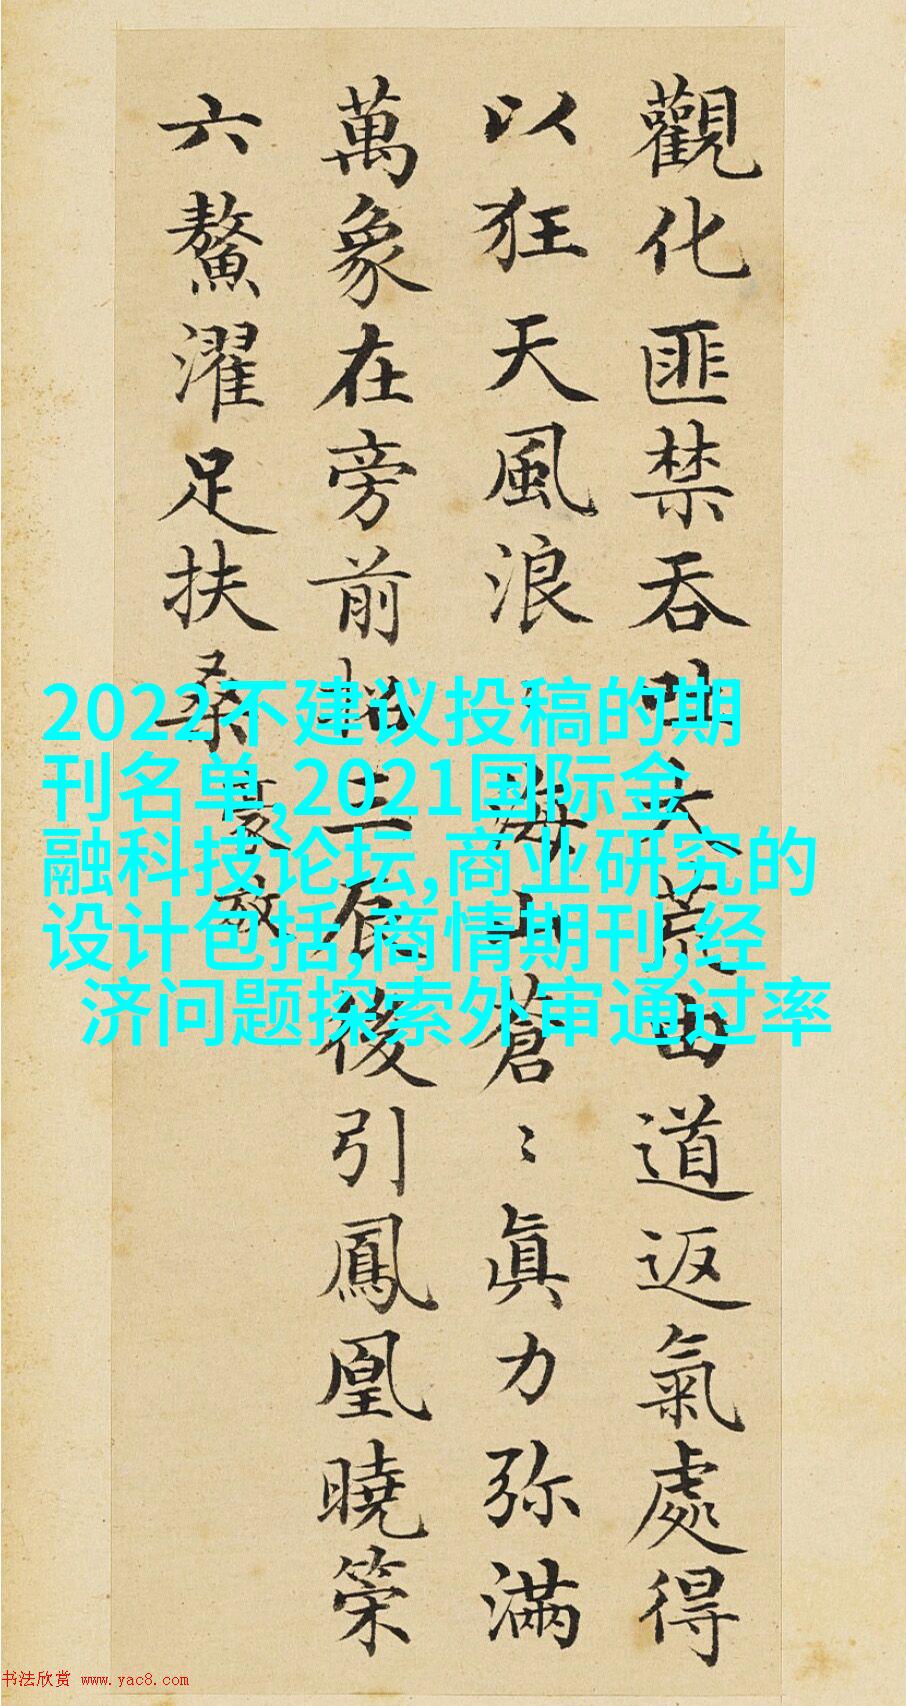 觀化匪禁吞吐大荒由道返氣處得
以狂天風浪〻海山蒼〻眞力弥滿
萬象在旁前招三辰後引鳳凰曉策
六鰲濯足扶桑
豪放
2022不建议投稿的期
刊名单,2021国际金
融科技论坛,商业研究的
设计包括,商情期刊,经
济问题探索外审通过率
书法欣赏 www.yac8.com